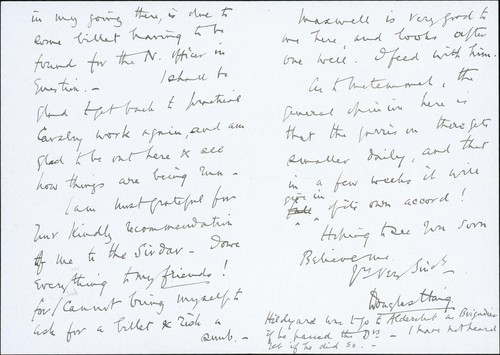 in my going there, is due to
some billet having to be
found for the N. officer in
Question. - I shall be
glad to get back to practical
Cavalry work again, and am
glad to be out here & see
how things are being run -
I am most grateful for
Your kindly recommendation
of me to the Sirdar - I owe
everything to my friends!
for I cannot bring myself to
ask for a billet & risk a
snub. -
Maxwell is very good to
me here, and looks after
one well. I feed with him.
As to Metemmeh, the
general opinion here is
that the garrison there gets
smaller daily, and that
in a few weeks it will
give in
fall of its own accord!
Hoping to see you soon
Believe me
Yrs very Sincly
Douglas Haig
Hildyard was to go to Aldershot as Brigadier
if he passed the Drs - I have not heard
yet if he did so. -